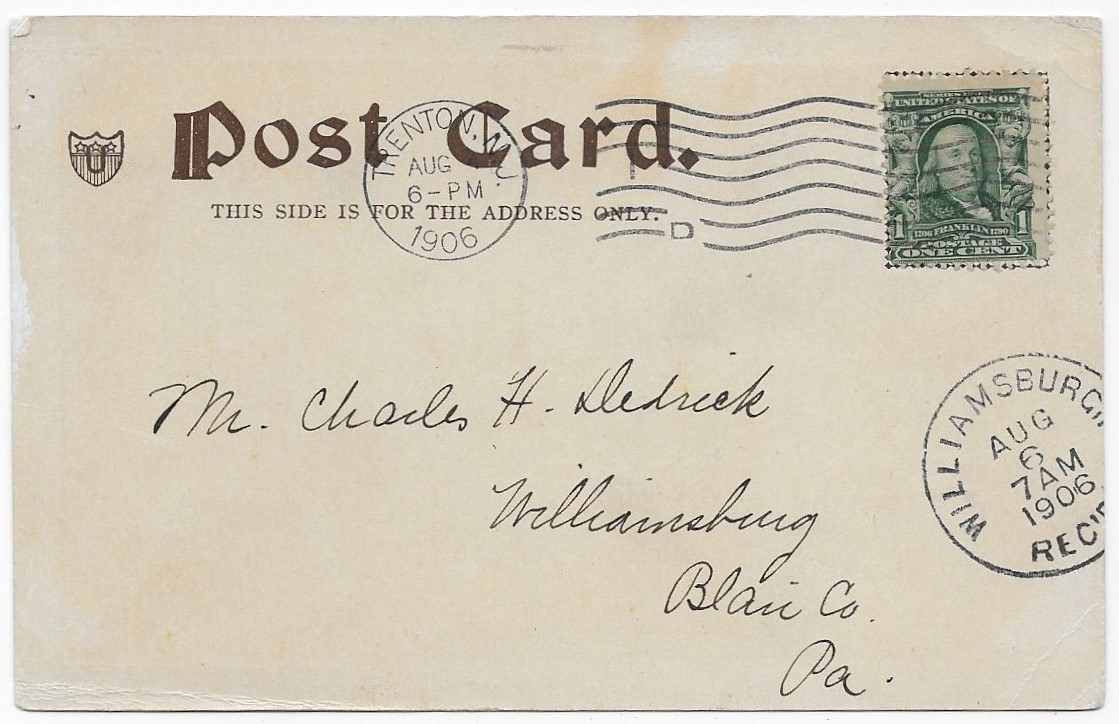 U
Post Card.
THIS SIDE IS FOR THE ADDRESS ONLY.
TRENTON, N.J.
AUG
6-PM
1906
D
UNITED STATES OF
AMERICA
1 1
1706 FRANKLIN 1790
POSTAGE
ONE CENT
Mr. Charles H. Dedrick
Williamsburg
Blair Co.
Pa.
WILLIAMSBURG
AUG
6
7AM
1906
REC'D